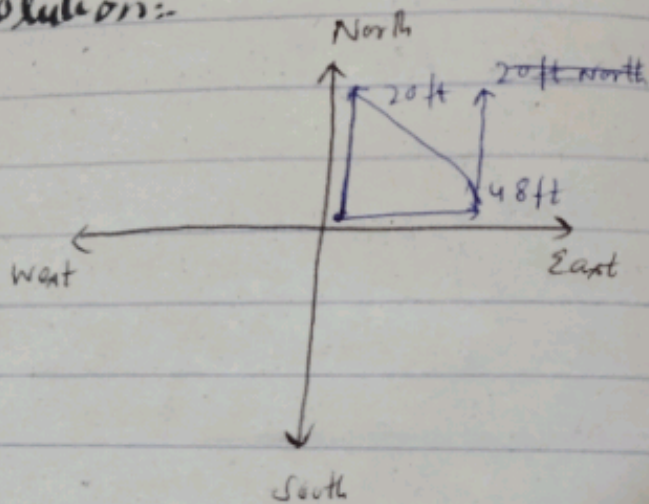 Solution:-
North
20 ft
20 ft North
48ft
West
East
South